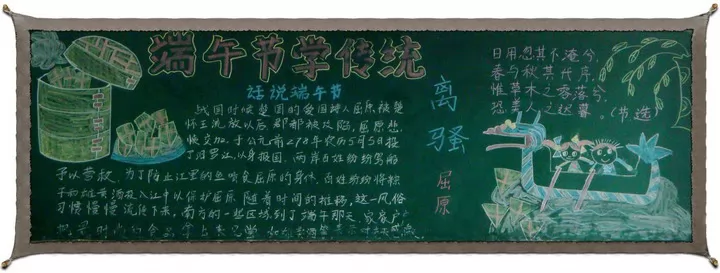 端午节学传统
话说端午节
战国时候楚国的爱国诗人屈原被楚
怀王流放以后郢都被攻陷，屈原悲
愤交加，于公元前278年农历5月5日投
了汨罗江，以身报国。两岸百姓纷纷驾船
予以营救。为了防止江里的鱼啃食屈原的身体，百姓纷纷将粽
子和雄黄酒投入江中以保护屈原 随着时间的推移，这一风俗
习惯慢慢流传下来，南方的一些区域到了端午那天 家家户户
离骚
屈原
日月忽其不淹兮，
春与秋其代序，
惟草木之零落兮，
恐美人之迟暮。（节选）